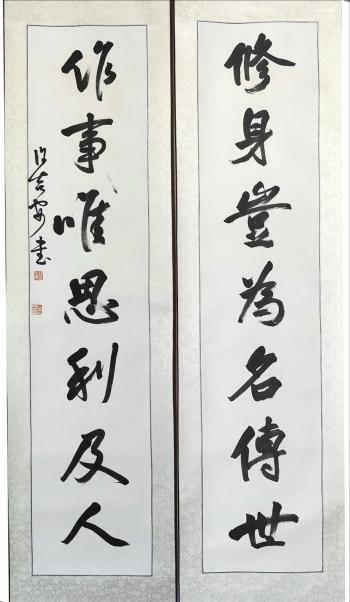 修身豈為名傳世
作事唯思利及人